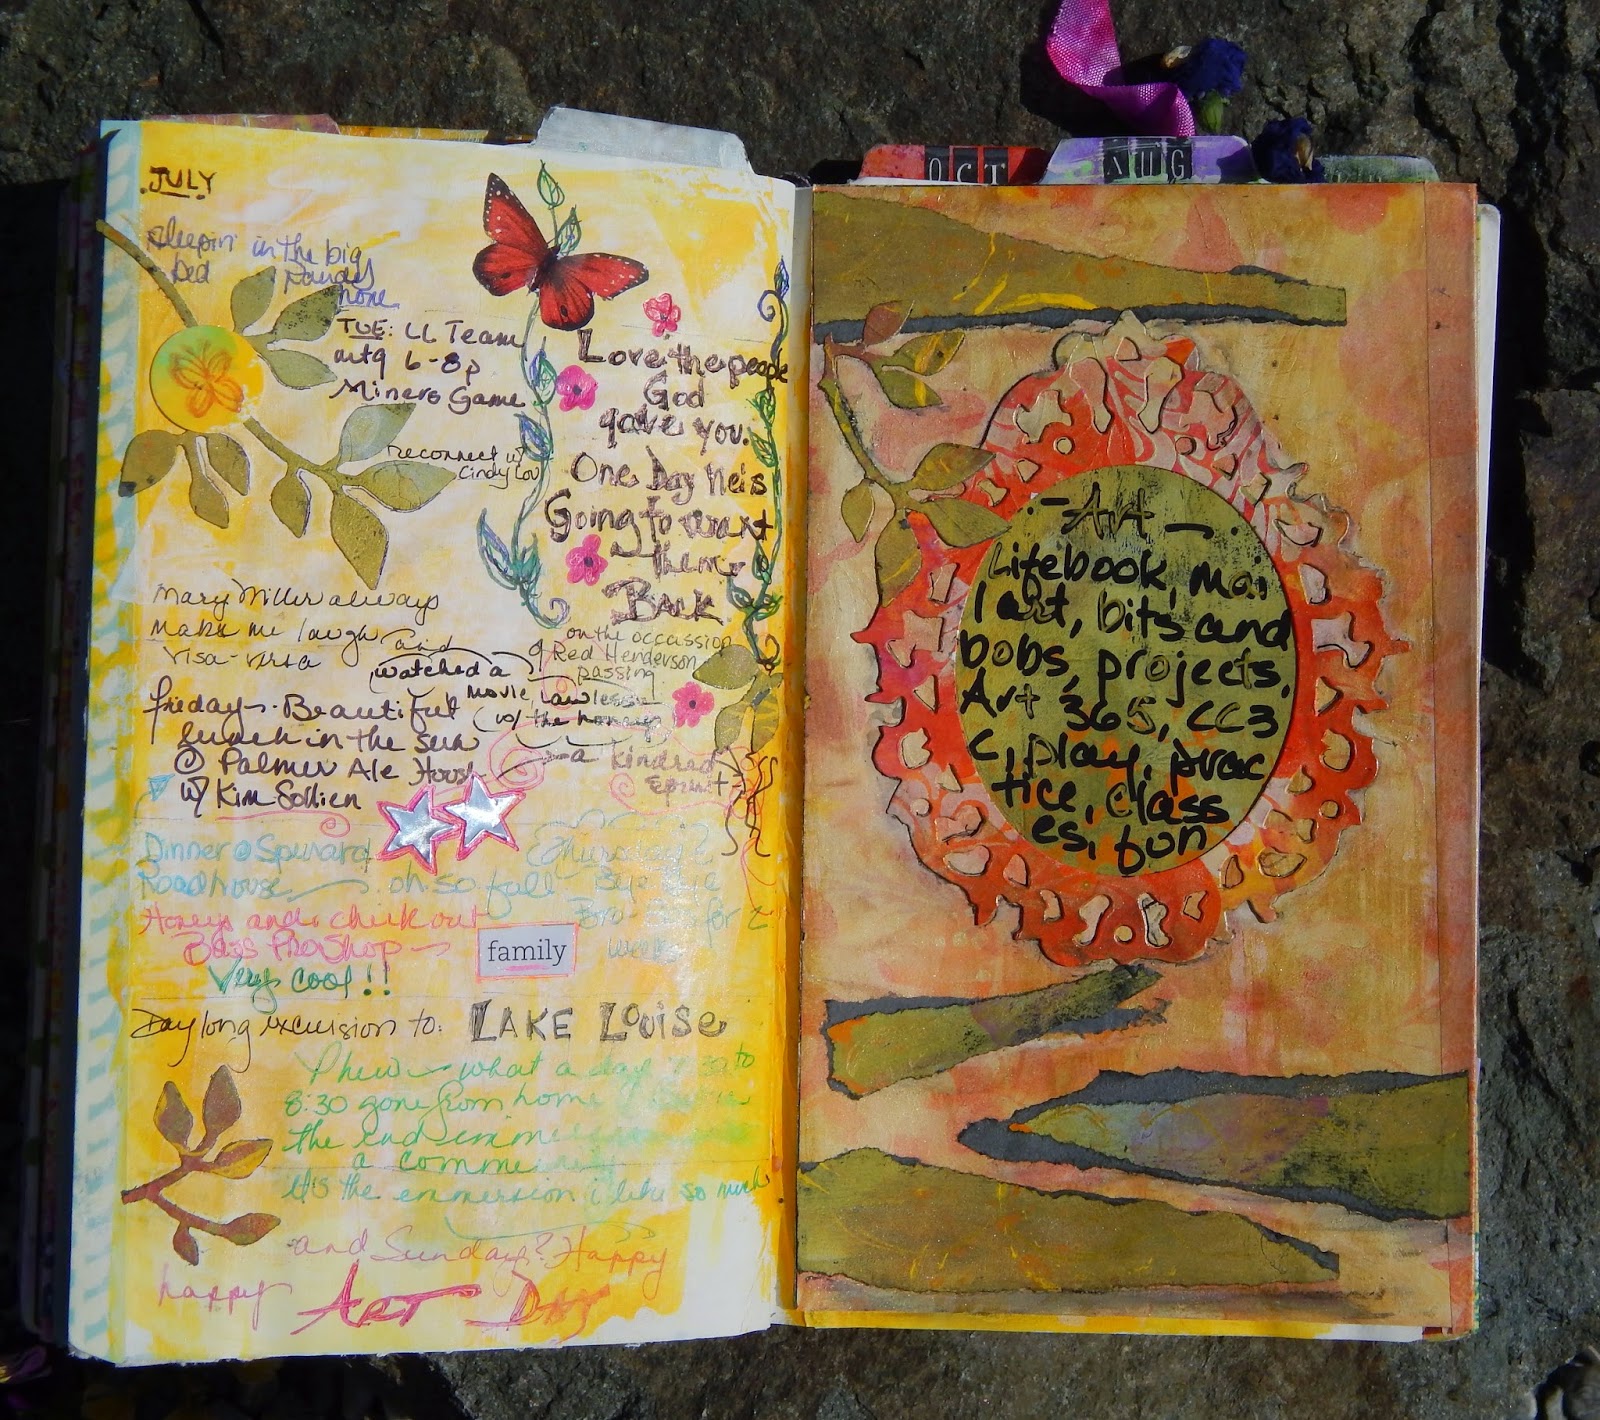 OCT
AUG
JULY
sleepin in the big
bed
TUE: LL Team
mtg 6-8p
Miners Game
reconnect w/
Cindy Lou
Love the people
God
gave you.
One Day He's
Going to want
them
BACK
on the occassion
of Red Henderson
passing
Mary Miller always
make me laugh and
visa-versa
watched a
movie Lawless
w/ the honeys
friday. Beautiful
lunch in the sun
@ Palmer Ale House
w/ Kim Sollien
a kindred
spirit
Dinner @ Spenard
Roadhouse oh so full
Thursday?
Bye Bye
Bro-
for 2
weeks
Honeys and i check out
Bass Pro Shop
Very cool!!
family
Day long excursion to: LAKE LOUISE
Phew what a day to
8:30 gone from home
the end
a comme
it's the emmersion i like so much
and Sunday? Happy
happy ART DAY
-Art-
Lifebook, mai
l art, bits and
bobs, projects,
Art 365, CC3
C, play, prac
tice, class
es, fun